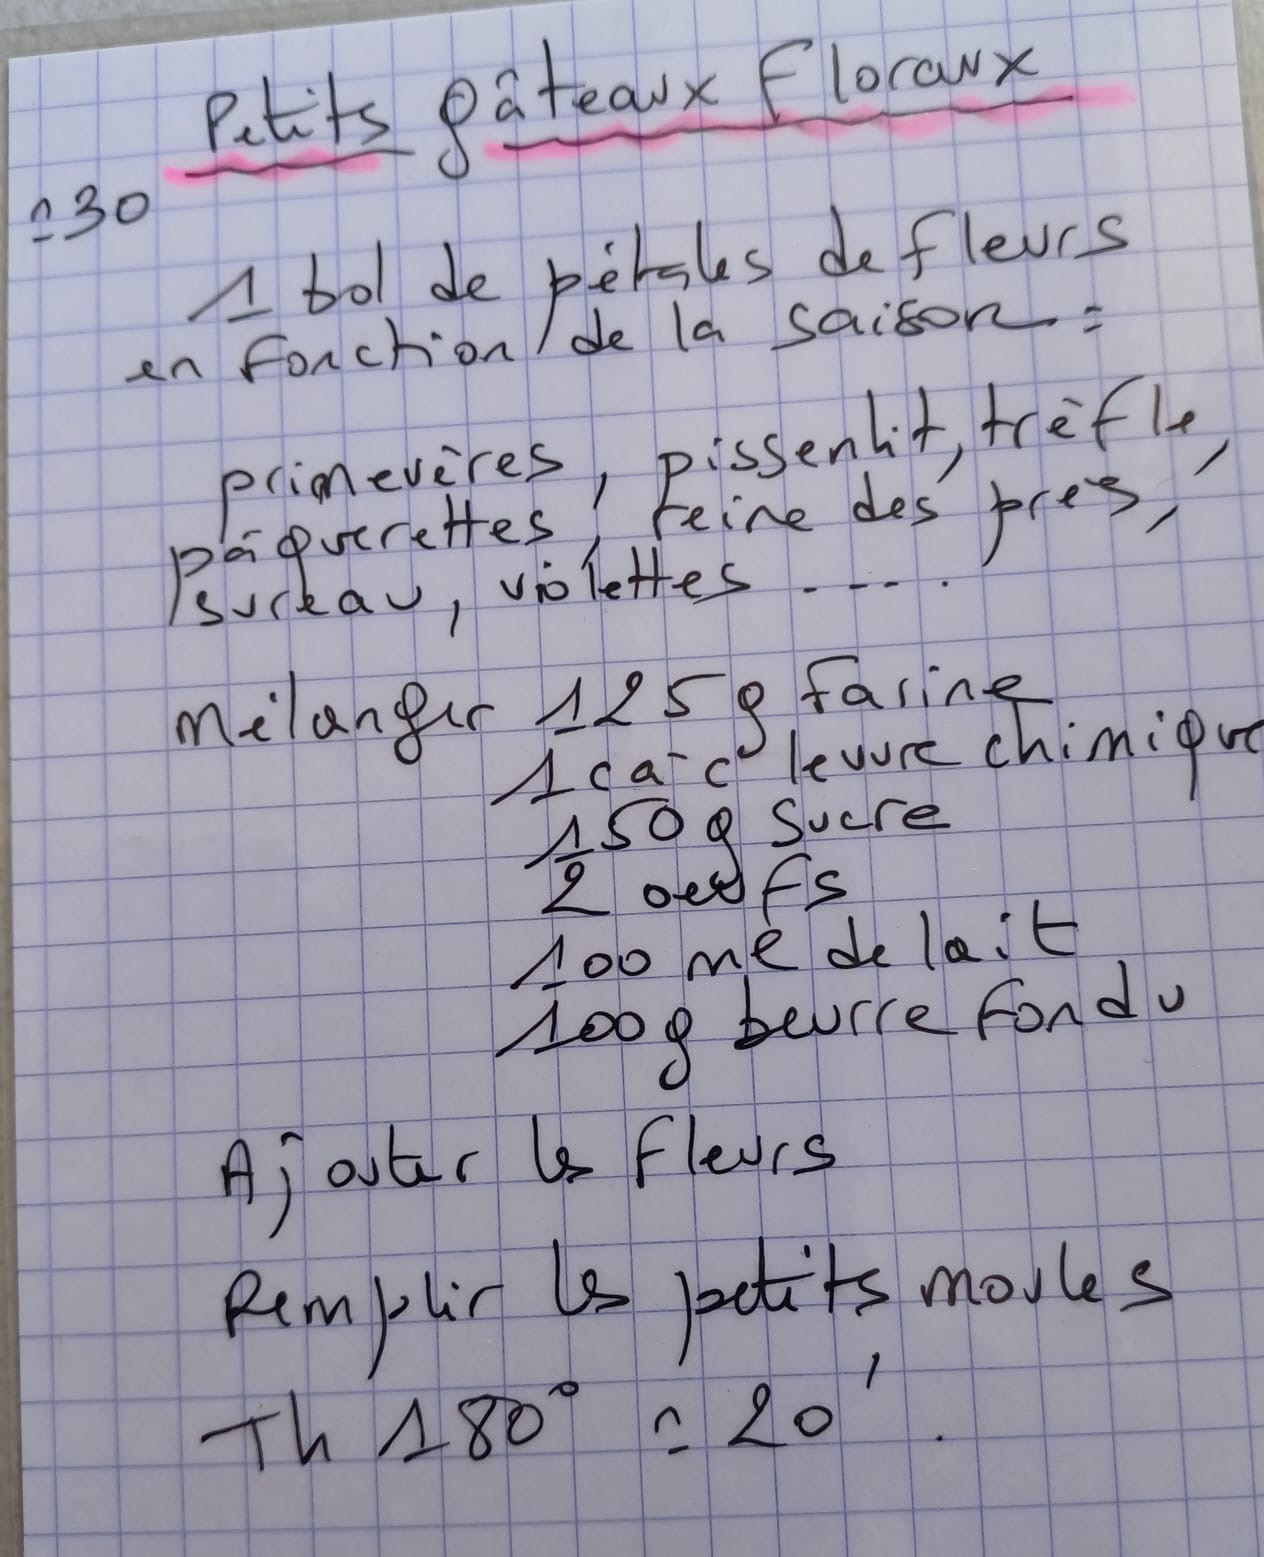 Petits gâteaux Floraux
≃30
1 bol de pétales de fleurs
en fonction de la saison :
primevères, pissenlit, trèfle,
pâquerettes, reine des prés,
sureau, violettes ....
Mélanger 125 g farine
1 c à c levure chimique
150 g sucre
2 oeufs
100 ml de lait
100 g beurre fondu
Ajouter les fleurs
Remplir les petits moules
Th 180° ≃ 20'.